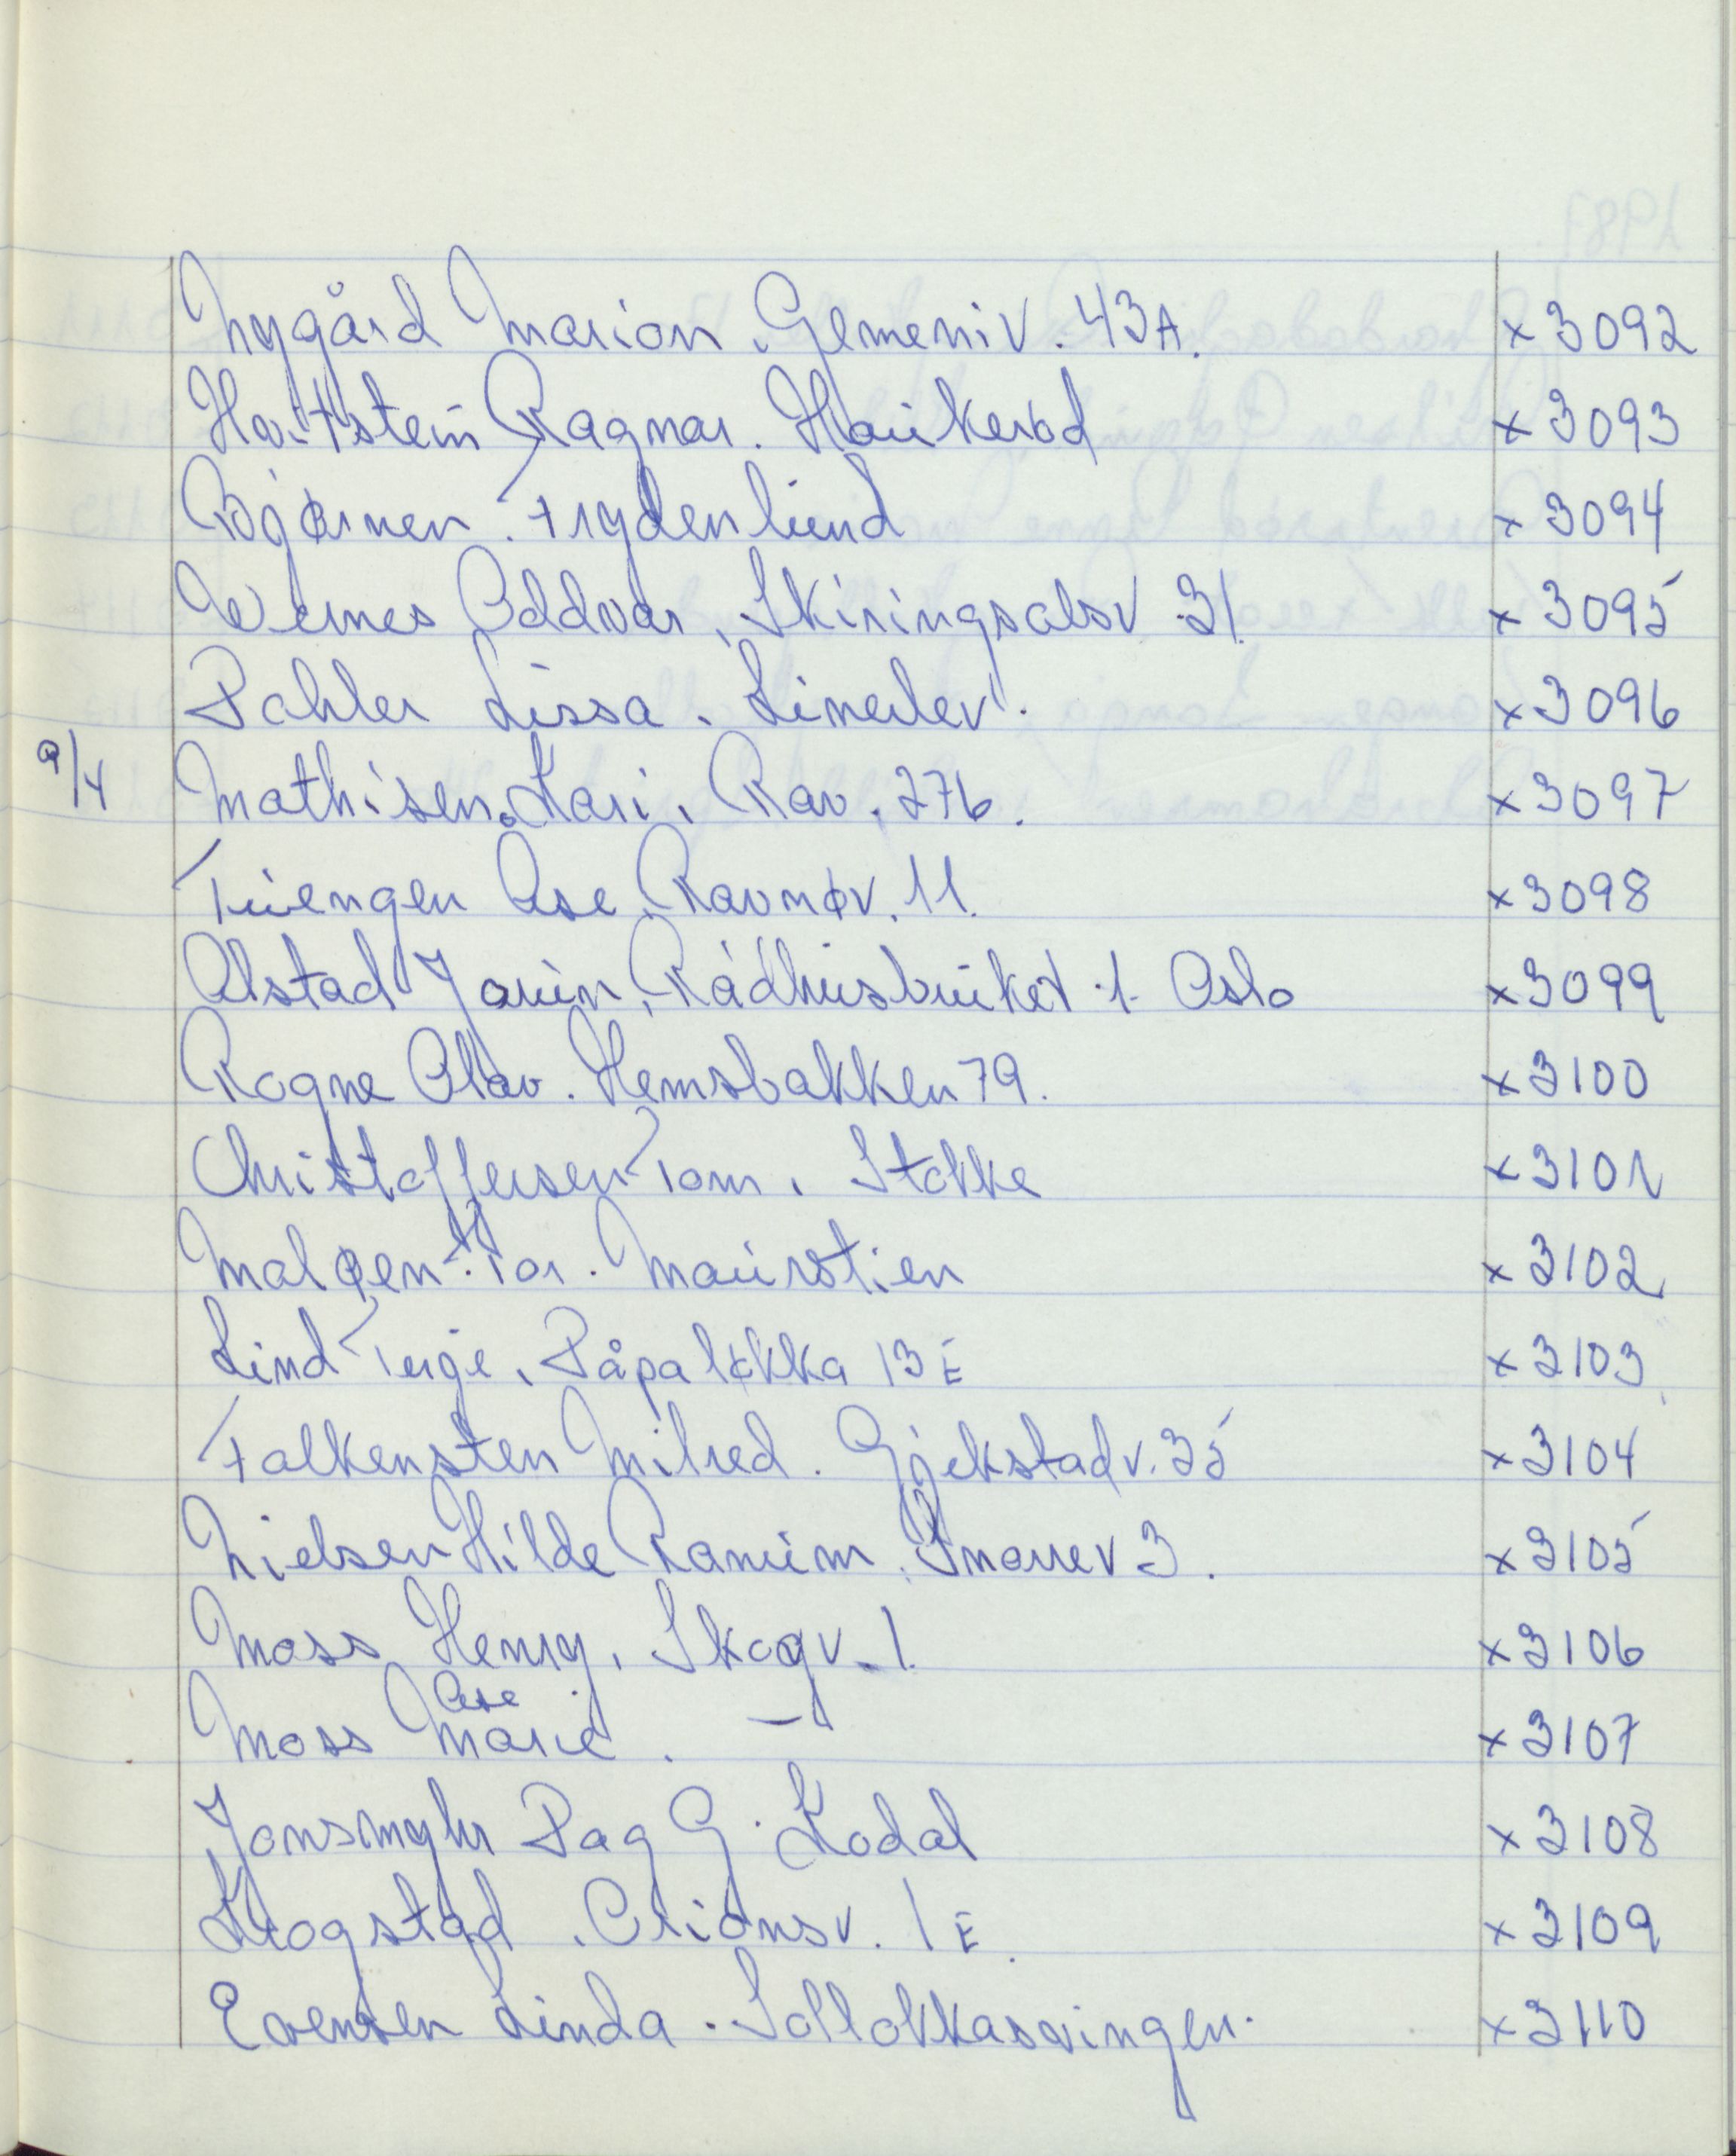 Nygård Marion. Gemeniv. 43A. x 3092
Havtstein Ragnar. Haukerød x 3093
Bjørnen. Frydenlund x 3094
Wernes Oddvar, Skiringsalsv 31. x 3095
Dahler Lissa. Linerlev. x 3096
9/4 Mathisen Kari, Rav. 276. x 3097
Tuengen Åse, Ravnøv. 11. x 3098
Alstad Jorun, Rådhusbruket 1. Oslo x 3099
Rogne Olav. Hemsbakken 79. x 3100
Christoffersen Tom. Stokke x 3101
Maløen Tor. Maurstien x 3102
Lind Terje, Påpaløkka 13E x 3103
Falkensten Milred. Gjekstadv. 35 x 3104
Nielsen Hilde Ranum, Snarrev 3. x 3105
Moss Henry, Skogv. 1. x 3106
Moss Åse Marie. — x 3107
Jonsmyhr Dag G. Kodal x 3108
Krogstad. Orionsv. 1E. x 3109
Evensen Linda. Solløkkasvingen. x 3110